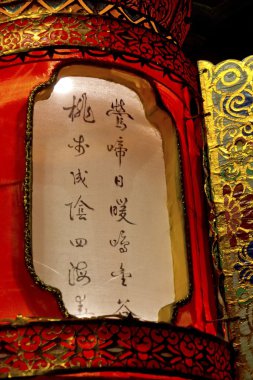 鶯啼日暖鳴金谷
桃李成陰四海